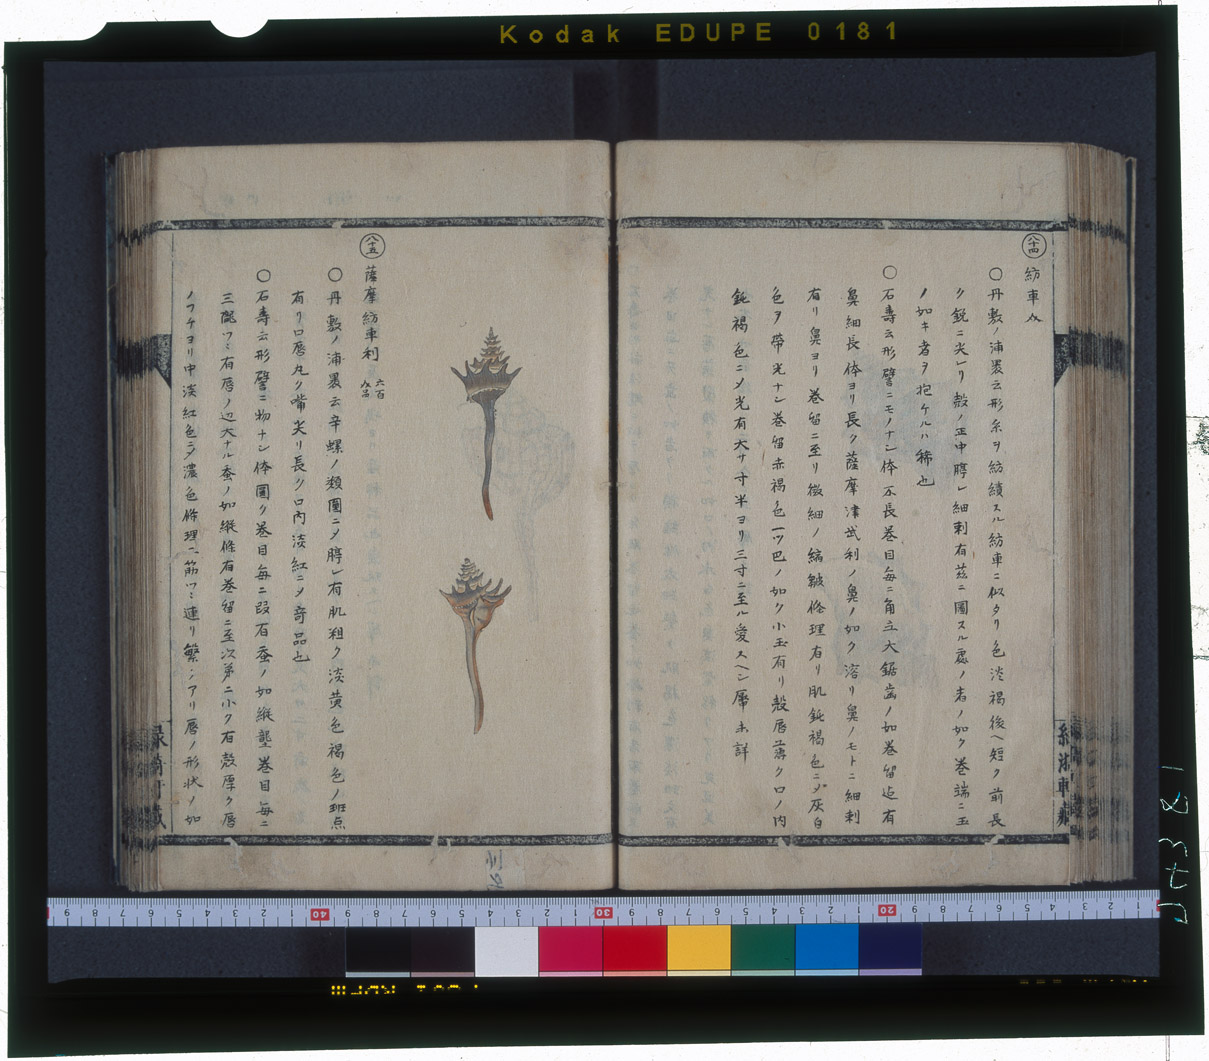 Kodak EDUPE 0181
八十四
紡車
〇丹敷ノ浦裏云形糸ヲ紡績スル紡車ニ似タリ色淡褐後ヘ短ク前長
ク鋭ニ尖レリ殻ノ正中膨レ細刺有茲ニ圖スル處ノ者ノ如ク巻端ニ玉
ノ如キ者ヲ抱ケルハ稀也
〇石壽云形譬ニモノナシ体不長巻目毎ニ角立大鋸歯ノ如巻留迠有
鼻細長体ヨリ長ク薩摩津武利ノ鼻ノ如ク溶リ鼻ノモトニ細刺
有リ鼻ヨリ巻留ニ至リ微細ノ縞皺條理有リ肌鈍褐色ニメ灰白
色ヲ帶光ナシ巻留赤褐色一ツ巴ノ如ク小玉有リ殻唇薄ク口ノ内
鈍褐色ニメ光有大サ寸半ヨリ三寸ニ至ル愛スヘシ屬未詳
八十五
薩摩紡車利
六百
〇丹敷ノ浦裏云辛螺ノ類圍ニメ膨レ有肌粗ク淡黄色褐色ノ斑点
有リ口唇丸ク嘴尖リ長ク口内淡紅ニメ奇品也
〇石壽云形譬ニ物ナシ体圓ク巻目毎ニ段石蚕ノ如縦壟巻目毎ニ
三配ツヽ有唇ノ辺大ナル蚕ノ如縦條有巻留ニ至次第ニ小ク有殻厚ク唇
ノフチヨリ中淡紅色ニメ濃色條理二筋ツヽ連リ繁シアリ唇ノ形状ノ如
9 8 7 6 5 4 3 2 1 40 9 8 7 6 5 4 3 2 1 30 9 8 7 6 5 4 3 2 1 20 9 8 7 6 5 4 3 2 1